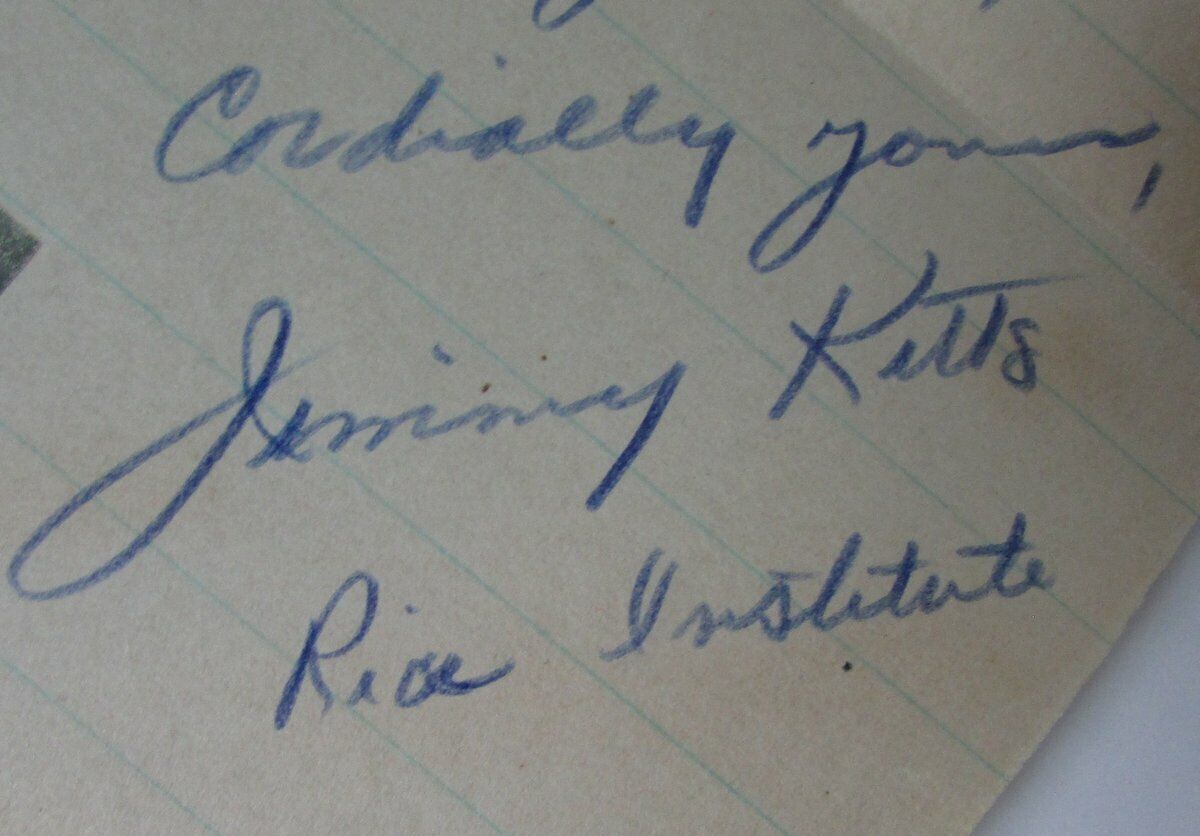 Cordially yours,
Jimmy Kitts
Rice Institute